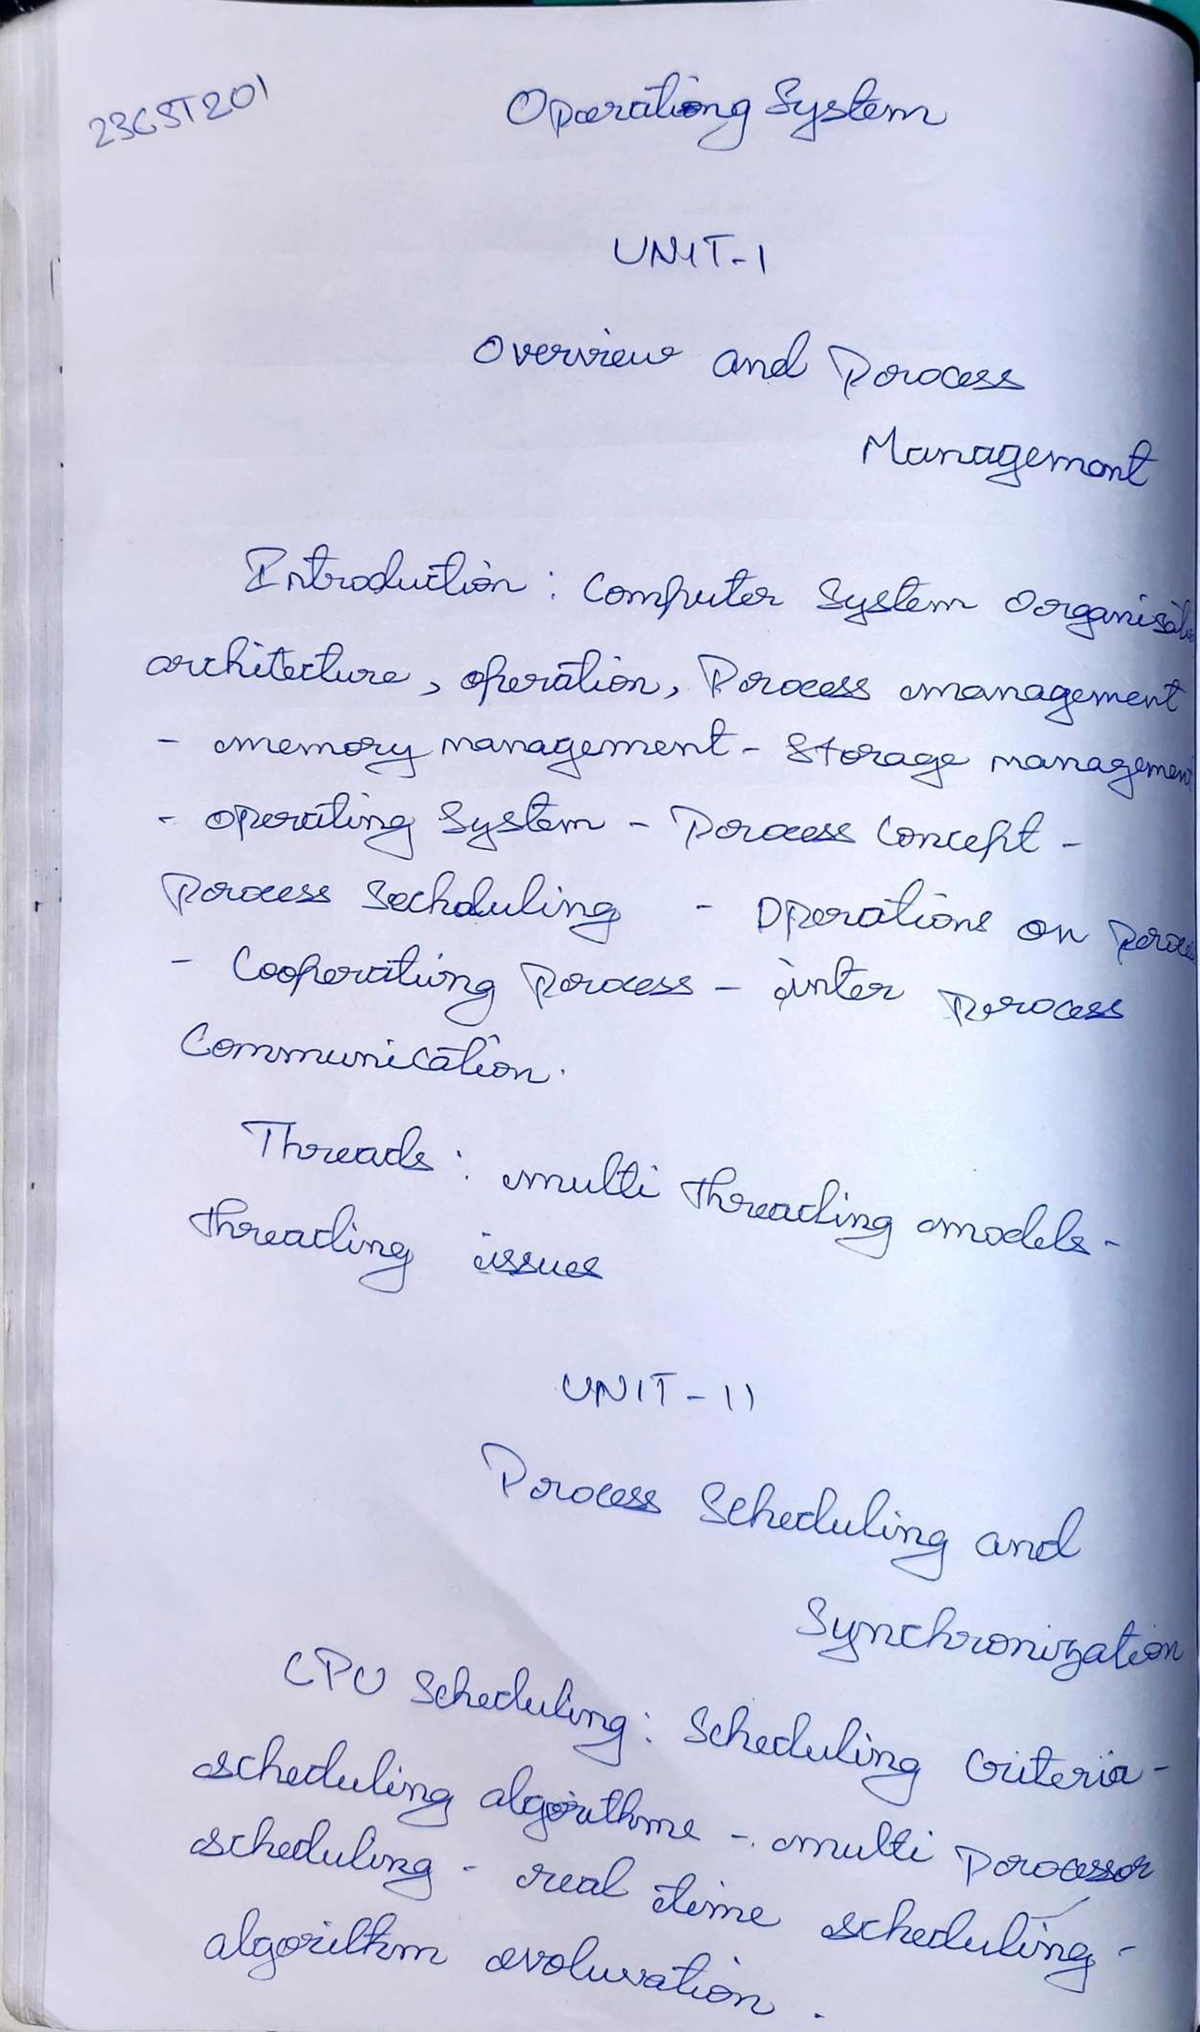 23CST201
Operating System
UNIT-I
Overview and Process
Management
Introduction : Computer System Organisati
architecture, operation, Process management
- memory management - Storage management
- operating System - Process Concept -
Process Sechduling - Operations on proce
- Cooperating Process - inter process
Communication.
Threads : multi threading models -
threading issues
UNIT-II
Process Scheduling and
Synchronization
CPU Scheduling : Scheduling Criteria -
scheduling algorithms - multi processor
scheduling - real time scheduling -
algorithm evoluvation .